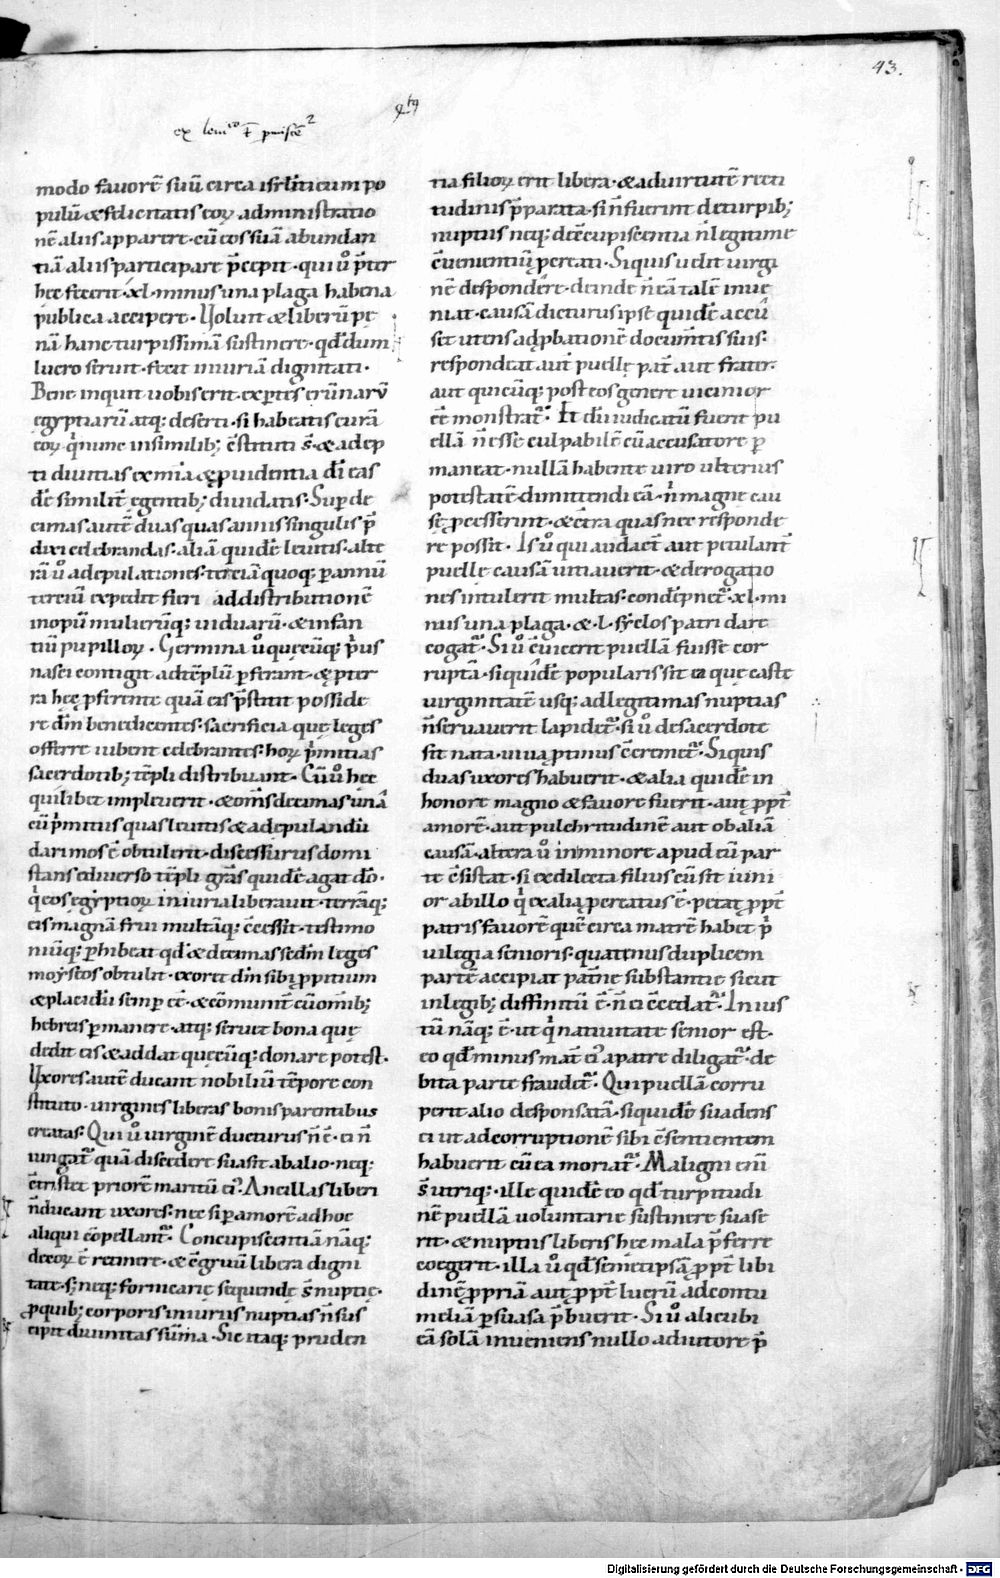 43.
modo favorē suū circa isrl̄iticum po
pulū & felicitatis eoꝝ administratio
nē aliis apparere. cū eos suā abundan
tiā aliis participare p̄cepit. qui ů p̄ter
hec fecerit. xl. minus una plaga habena
publica accipere. Volunt & liberū pe
nā hanc turpissimā sustinere. qđ dum
lucro seruit. fecit iniuriā dignitati.
Bene inquit uobis erit. expertis erūnarū
egyptiarū atq; deserti. si habeatis curā
eoꝝ q̇ nunc in similib; c̄stituti s̄. & adep
ti diuitias ex mīa & ꝓuidentia dī eas
dē similit̄ egentib; diuidatis. Suꝑ de
cimas autē duas quas annis singulis p̄
dixi celebrandas. aliā quidē leuitis. alte
rā ů ad epulationes. terciā quoq; ꝑ annū
terciū expedit fieri ad distributionē
inopū mulierūq; uiduarū. & infan
tiū pupilloꝝ. Germina ů quecūq; p̄us
nasci contigit ad tēplū ꝑferant. & ꝓpter
ra hęc ꝓferente quā eis p̄stitit posside
re dm̄ benedicentes. sacrificia quę leges
offerre iubent celebrantes. hoꝝ p̄mitias
sacerdotib; tēpli distribuant. Cū ů hec
quilibet impleuerit. & om̄s decimas unā
cū p̄mitiis quas leuitis & ad epulandū
dari mos ē obtulerit. discessurus domi
stans e diuerso tēpli grās quidē agat dō.
q̇ eos egyptioꝝ iniuria liberauit. terrāq;
eis magnā frui multāq; c̄cessit. testimo
niūq; ꝑhibeat qđ & decimas scdm̄ leges
moyseos obtulit. exoret dm̄ sibi ꝓpitium
& placidū semꝑ ēē. & cōmunit̄ cū om̄ib;
hebreis ꝑmanere. atq; seruet bona quę
dedit eis & addat quecūq; donare potest.
Vxores autē ducant nobiliū tēpore con
stituto. uirgines liberas bonis parentibus
creatas. Qui ů uirginē ducturus n̄ ē. ei n̄
iungat̄ quā discedere suasit ab alio. neq;
c̄tristet priorē maritū ei᾽. Ancillas liberi
n̄ ducant uxores. nec si ꝑ amorē ad hoc
aliqui cōpellant̄. Concupiscentiā nāq;
decoꝝ ē retinere. & c̄gruū libera digni
tate. s; neq; fornicarię sequendę s̄ nuptię.
ꝓ quib; corporis iniuriis nuptias n̄ sus
cipit diuinitas sūma. Sic itaq; pruden
tia filioꝝ erit libera. & ad uirtutē recti
tudinis p̄parata. si n̄ fuerint de turpib;
nuptiis neq; de c̄cupiscentia n̄ legitime
c̄uenientiū ꝓcreati. Siquis uelit uirgi
nē despondere. deinde n̄ eā talē inue
niat. causā dicturus ipse quidē accu
set utens ad ꝓbationē documtis suis.
respondeat aut̄ puellę pat̄ aut frater.
aut quicūq; post eos genere uicinior
ēē monstrat̄. Et dū iudicatū fuerit pu
ellā n̄ esse culpabilē cū accusatore ꝑ
maneat. nullā habente uiro ulterius
potestatē dimittendi eā. n̄ magnę cau
sę ꝓcesserint. & c̄tra quas nec responde
re possit. Is ů qui audact̄ aut petulant̄
puellę causā uitiauerit. & derogatio
nes intulerit multas. condēpnet̄. xl. mi
nus una plaga. & l. syclos patri dare
cogat̄. Si ů c̄uicerit puellā fuisse cor
ruptā. siquidē popularis sit ea que caste
uirginitatē usq; ad legitimas nuptias
n̄ seruauerit lapidet̄. si ů de sacerdote
sit nata. uiua ꝓtinus c̄cremet̄. Siquis
duas uxores habuerit. & alia quidē in
honore magno & fauore fuerit. aut ꝓpt̄
amorē. aut pulchritudinē aut ob aliā
causā. altera ů in minore apud eū par
te c̄sistat. si ex dilecta filius eū sit iuni
or ab illo q̇ ex alia ꝓcreatus ē. petat ꝓpt̄
patris favorē quē circa matrē habet p̄
uilegia senioris. quatenus duplicem
partē accipiat patnę substantię sicut
in legib; diffinitū ē. n̄ ei c̄cedat̄. Inius
tū nāq; ē. ut q̇ natiuitate senior est.
eo qđ minus mat̄ ei᾽ a patre diligat̄. de
bita parte fraudet̄. Qui puellā corru
perit alio desponsatā. siquidē suadens
ei ut ad corruptionē sibi c̄sentientem
habuerit cū ea moriat̄. Maligni enī
s̄ utriq;. ille quidē eo qđ turpitudi
nē puellā uoluntarie sustinere suase
rit. & nuptiis liberis hec mala p̄ferre
coegerit. illa ů qđ semetipsā ꝓpt̄ libi
dinē ꝓpriā aut ꝓpt̄ lucrū ad contu
meliā ꝑsuasa p̄buerit. Si ů alicubi
eā solā inueniens nullo adiutore p̄
Digitalisierung gefördert durch die Deutsche Forschungsgemeinschaft - DFG